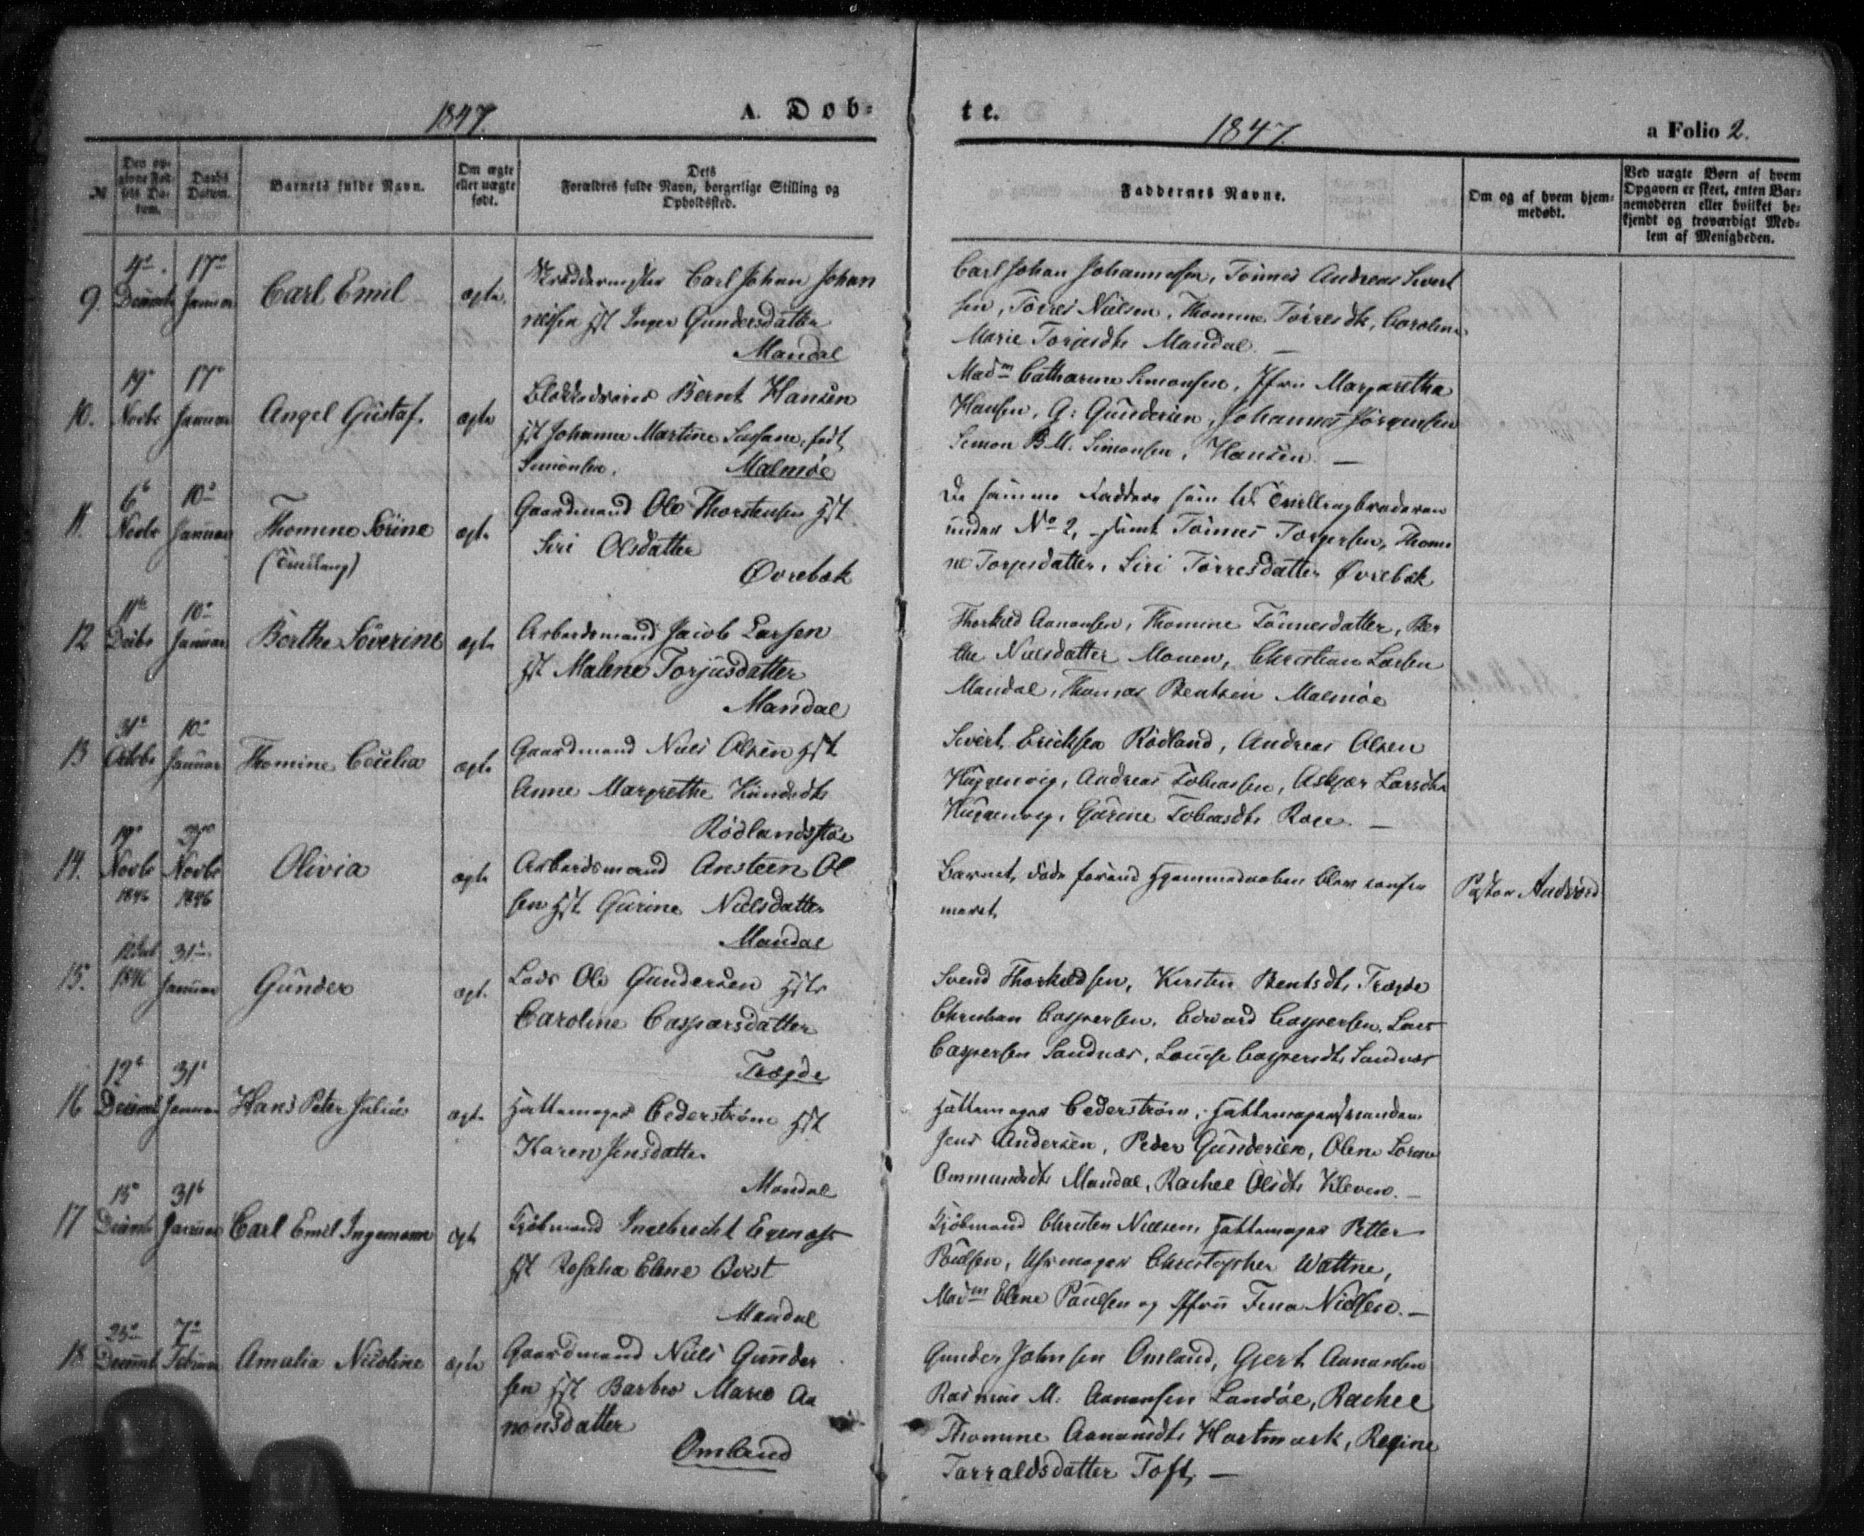 1847.
A. Dob-
te.
1847.
a Folio 2.
№
Den op-
givne Fød-
sels Da-
tum.
Daabs
Datum.
Barnets fulde Navn.
Om ægte
eller uægte
født.
Dets
Forældres fulde Navn, borgerlige Stilling og
Opholdssted.
Faddernes Navne.
Om og af hvem hjem-
medøbt.
Ved uægte Børn af hvem
Opgaven er skeet, enten Bar-
nemoderen eller hvilket be-
kjendt og troværdigt Med-
lem af Menigheden.
9.
17
Januar
Carl Emil
ægte
Carl Johan Johan
nessen Inger Gundersdatter
Mandal
Carl Johan Johannessen, Tønnes Andreas Sivert
sen, Torres Nielsen, Thomine
Marie Torjesdtr Mandal. —
10.
19
Novbr
17
Januar
Angel Gustaf.
ægte
Bernt Hansen
Johanne Martine født
Simonsen.
Malmøe
Madm Catharine Simonsen, Jfru Margaretha
Hansen, G: Gundersen, Johannes Jörgensen
Simon B M. Simonsen, Hansen. —
11.
6
Novbr
10
Januar
Thomine Sörine
(Tvilling)
ægte
Gaardmand Ole Thorstensen
Siri Olsdatter
Øvrebæk
De samme Faddere som til Tvillingbroderen
under No 2, samt Tönnes Torgersen, Thomi
ne Torjesdatter, Siri Törresdatter Øvrebæk
12
11
Decbr
10
Januar
Berthe Söverine
ægte
Arbeidsmand Jacob Larsen
Malene Torjusdatter
Mandal
Thorkild Aanonsen, Thomine Tönnesdatter, Ber
the Nielsdatter Monen, Christian Larsen
Mandal, Thomas Bentsen Malmöe
13
31
Octbr
10
Januar
Thomine Cecilia
ægte
Gaardmand Niels Olsen
Anne Margrethe
Rödlandsstøe
Sivert Ericksen Rödland, Andreas Olsen
Andreas Tobiassen, Larsdtr
Gurine Tobiasdtr —
14.
19
Novbr
1846
Novbr
1846
Olivia
ægte
Arbeidsmand Ansteen Ol
sen Gurine Nielsdatter
Mandal
Barnet døde forend Hjemmedaaben blev confir
meret
Pastor
15.
12 Juli
1846
31
Januar
Gunder
ægt.
Lods Ole Gundersen
Caroline Caspersdatter
Trægde
Svend Thorkildsen, Kirsten Bentsdtr Trægde
Christian Caspersen, Edvard Caspersen, Lars
Caspersen Sandnæs, Louise Caspersdtr Sandnæs
16
12
31
Januar
Hans Peter Julius
ægte
Hattemager Cederström
Karen Jensdatter
Mandal
Hattemager Cederström,
Jens Andersen, Peder Gundersen, Olene
Ommundsdtr Mandal, Rachel Olsdtr Kleven. —
17
15
31
Januar
Carl Emil Ingemann
ægte
Kjöbmand Ingebrecht
Rosalia Elene Qvist
Mandal
Kjöbmand Christen Nielsen, Hattemager Petter
Poulsen, Uhrmager Christopher Wattne,
Madm Elene Paulsen og Jfru Tina Nielsen. —
18
7
Amalia Nicoline
ægte
Gaardmand Niels Gunder
sen Barbro Marie Aa
nonsdatter
Omland
Gunder Johnsen Omland, Gjert Aanonsen
Rasmus M. Aanonsen Landöe, Rachel
Thomine Aanonsdtr Hartmark, Regine
Tarraldsdatter Toft, —